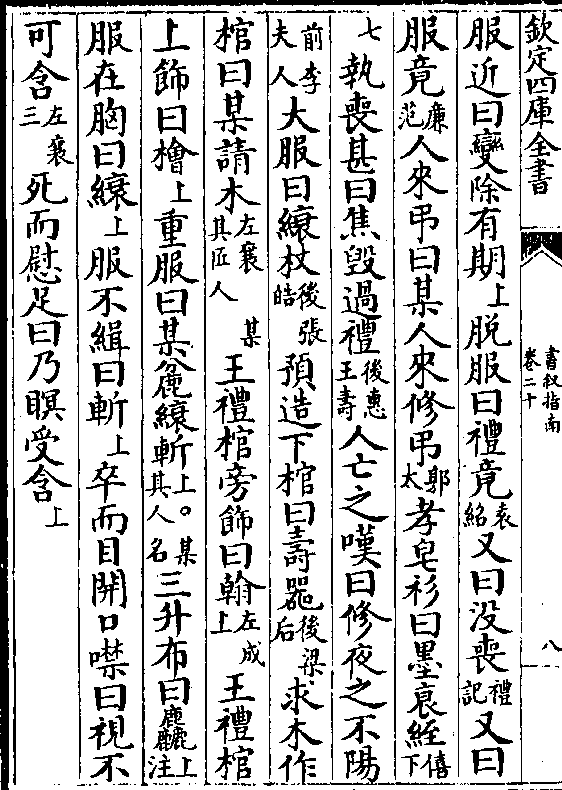 欽定四庫全書
書叙指南
卷二十
八
服近曰變除有期上脱服曰禮竟袁紹又曰没喪禮記又曰
服竟廉范人來弔曰某人來修弔郭太孝皂衫曰墨衰絰僖下
七執喪甚曰焦毁過禮後惠王壽人亡之嘆曰修夜之不陽
前李夫人大服曰縗杖後張皓預造下棺曰壽噐後梁后求木作
棺曰某請木左襄某其匠人王禮棺旁飾曰翰左成上王禮棺
上飾曰檜上重服曰某麄縗斬上。某其人名三升布曰麤上注
服在胸曰縗上服不緝曰斬上卒而目開口噤曰視不
可含左襄三死而慰足曰乃瞑受含上